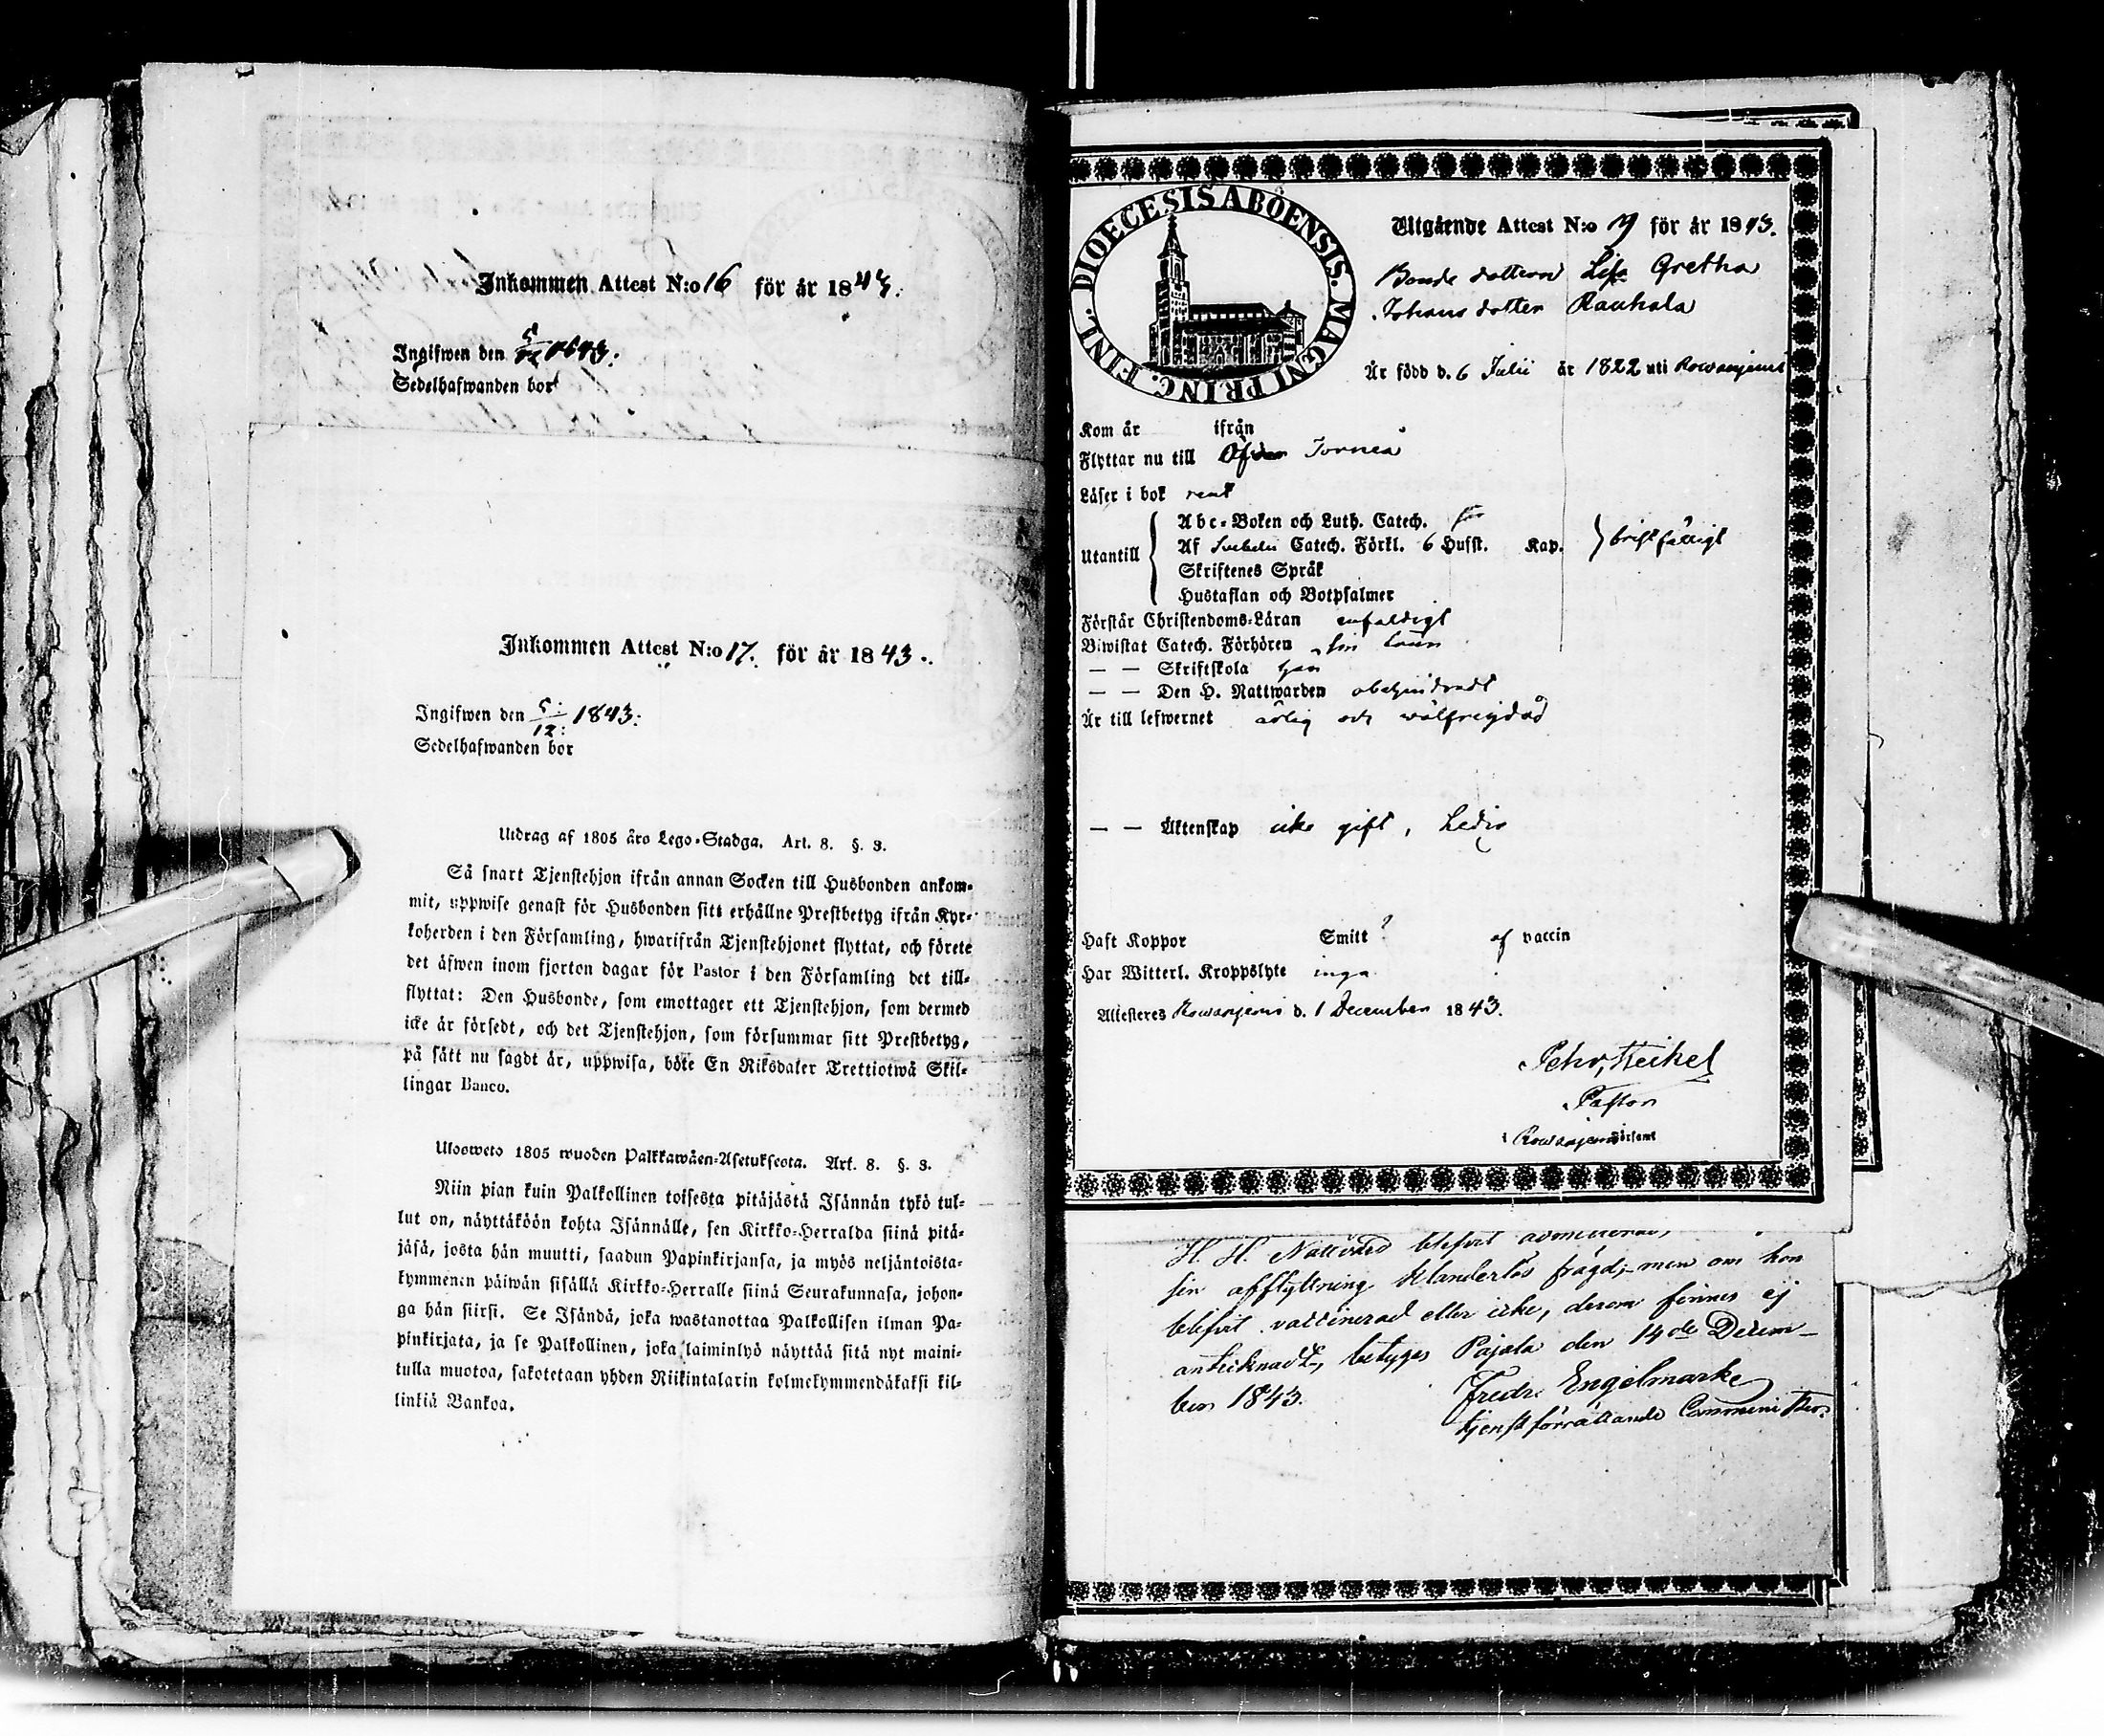 Inkommen Attest N:o 16 för år 1843.
Ingifwen den 5/12 1843:
Sedelhafwanden bor
Inkommen Attest N:o 17. för år 1843.
Ingifwen den 5:/12: 1843:
Sedelhafwanden bor
Utdrag af 1805 års Lego-Stadga. Art. 8. §. 3.
Så snart Tjenstehjon ifrån annan Socken till Husbonden ankom-
mit, uppwise genast för Husbonden sitt erhållne Prestbetyg ifrån Kyr-
koherden i den Församling, hwarifrån Tjenstehjonet flyttat, och förete
det äfwen inom fjorton dagar för Pastor i den Församling det till-
flyttat: Den Husbonde, som emottager ett Tjenstehjon, som dermed
icke är försedt, och det Tjenstehjon, som försummar sitt Prestbetyg,
på sätt nu sagdt är, uppwisa, böte En Riksdaler Trettiotwå Skil-
lingar Banco.
Ulosweto 1805 wuoden Palkkawäen-Asetuksesta. Art. 8. §. 3.
Niin pian kuin Palkollinen toisesta pitäjästä Isännän tykö tul-
lut on, näyttäköön kohta Isännälle, sen Kirkko-Herralda siinä pitä-
jäsä, josta hän muutti, saadun Papinkirjansa, ja myös neljäntoista-
kymmenen päiwän sisällä Kirkko-Herralle siinä Seurakunnasa, johon-
ga hän siirsi. Se Isändä, joka wastanottaa Palkollisen ilman Pa-
pinkirjata, ja se Palkollinen, joka laiminlyö näyttää sitä nyt maini-
tulla muotoa, sakotetaan yhden Riikintalarin kolmekymmendäkaksi kil-
linkiä Bankoa.
DIOECESIS ABÖENSIS. MAGNI PRINC. FINL.
Utgående Attest N:o för år 1843.
Bonde dottern Lisa Gretha
Johans dotter Rauhala
Är född d. 6 Julii år 1822 uti Rowaniemi
Kom år ifrån
Flyttar nu till Öfver Torneå
Läser i bok rent
Utantill
Abc-Boken och Luth. Catech.
Af Svebelii Catech. Förkl. 6 Hufst. Kap. } bristfälligt
Skriftenes Språk
Hustaflan och Botpsalmer
Förstår Christendoms-Läran enfaldigt
Biwistat Catech. Förhören
— — Skriftskola
— — Den H. Nattwarden obehindradt
Är till lefwernet ärlig och wälfrejdad
— — Äktenskap icke gift, Ledig
Haft Koppor Smitt ? af vaccin
Har Witterl. Kroppslyte inga
Attesteres Rowaniemi d. 1 December 1843.
Pehr Heikel
Pastor
i Rowaniemi Församl
H. H. Nattvard blefvit admitterad,
sin afflyttning klanderlös frägd; men om hon
blefvit vaccinerad eller icke, derom finnes ej
antecknadt, betyges Pajala den 14de Decem-
ber 1843.
Fredr. Engelmark
tjenstförrättande Comminister.